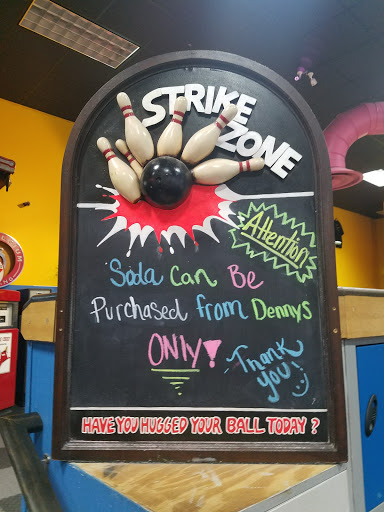 STRIKE
ZONE
Attention
Soda Can Be
Purchased from Dennys
ONLY!
Thank
you! :)
HAVE YOU HUGGED YOUR BALL TODAY?